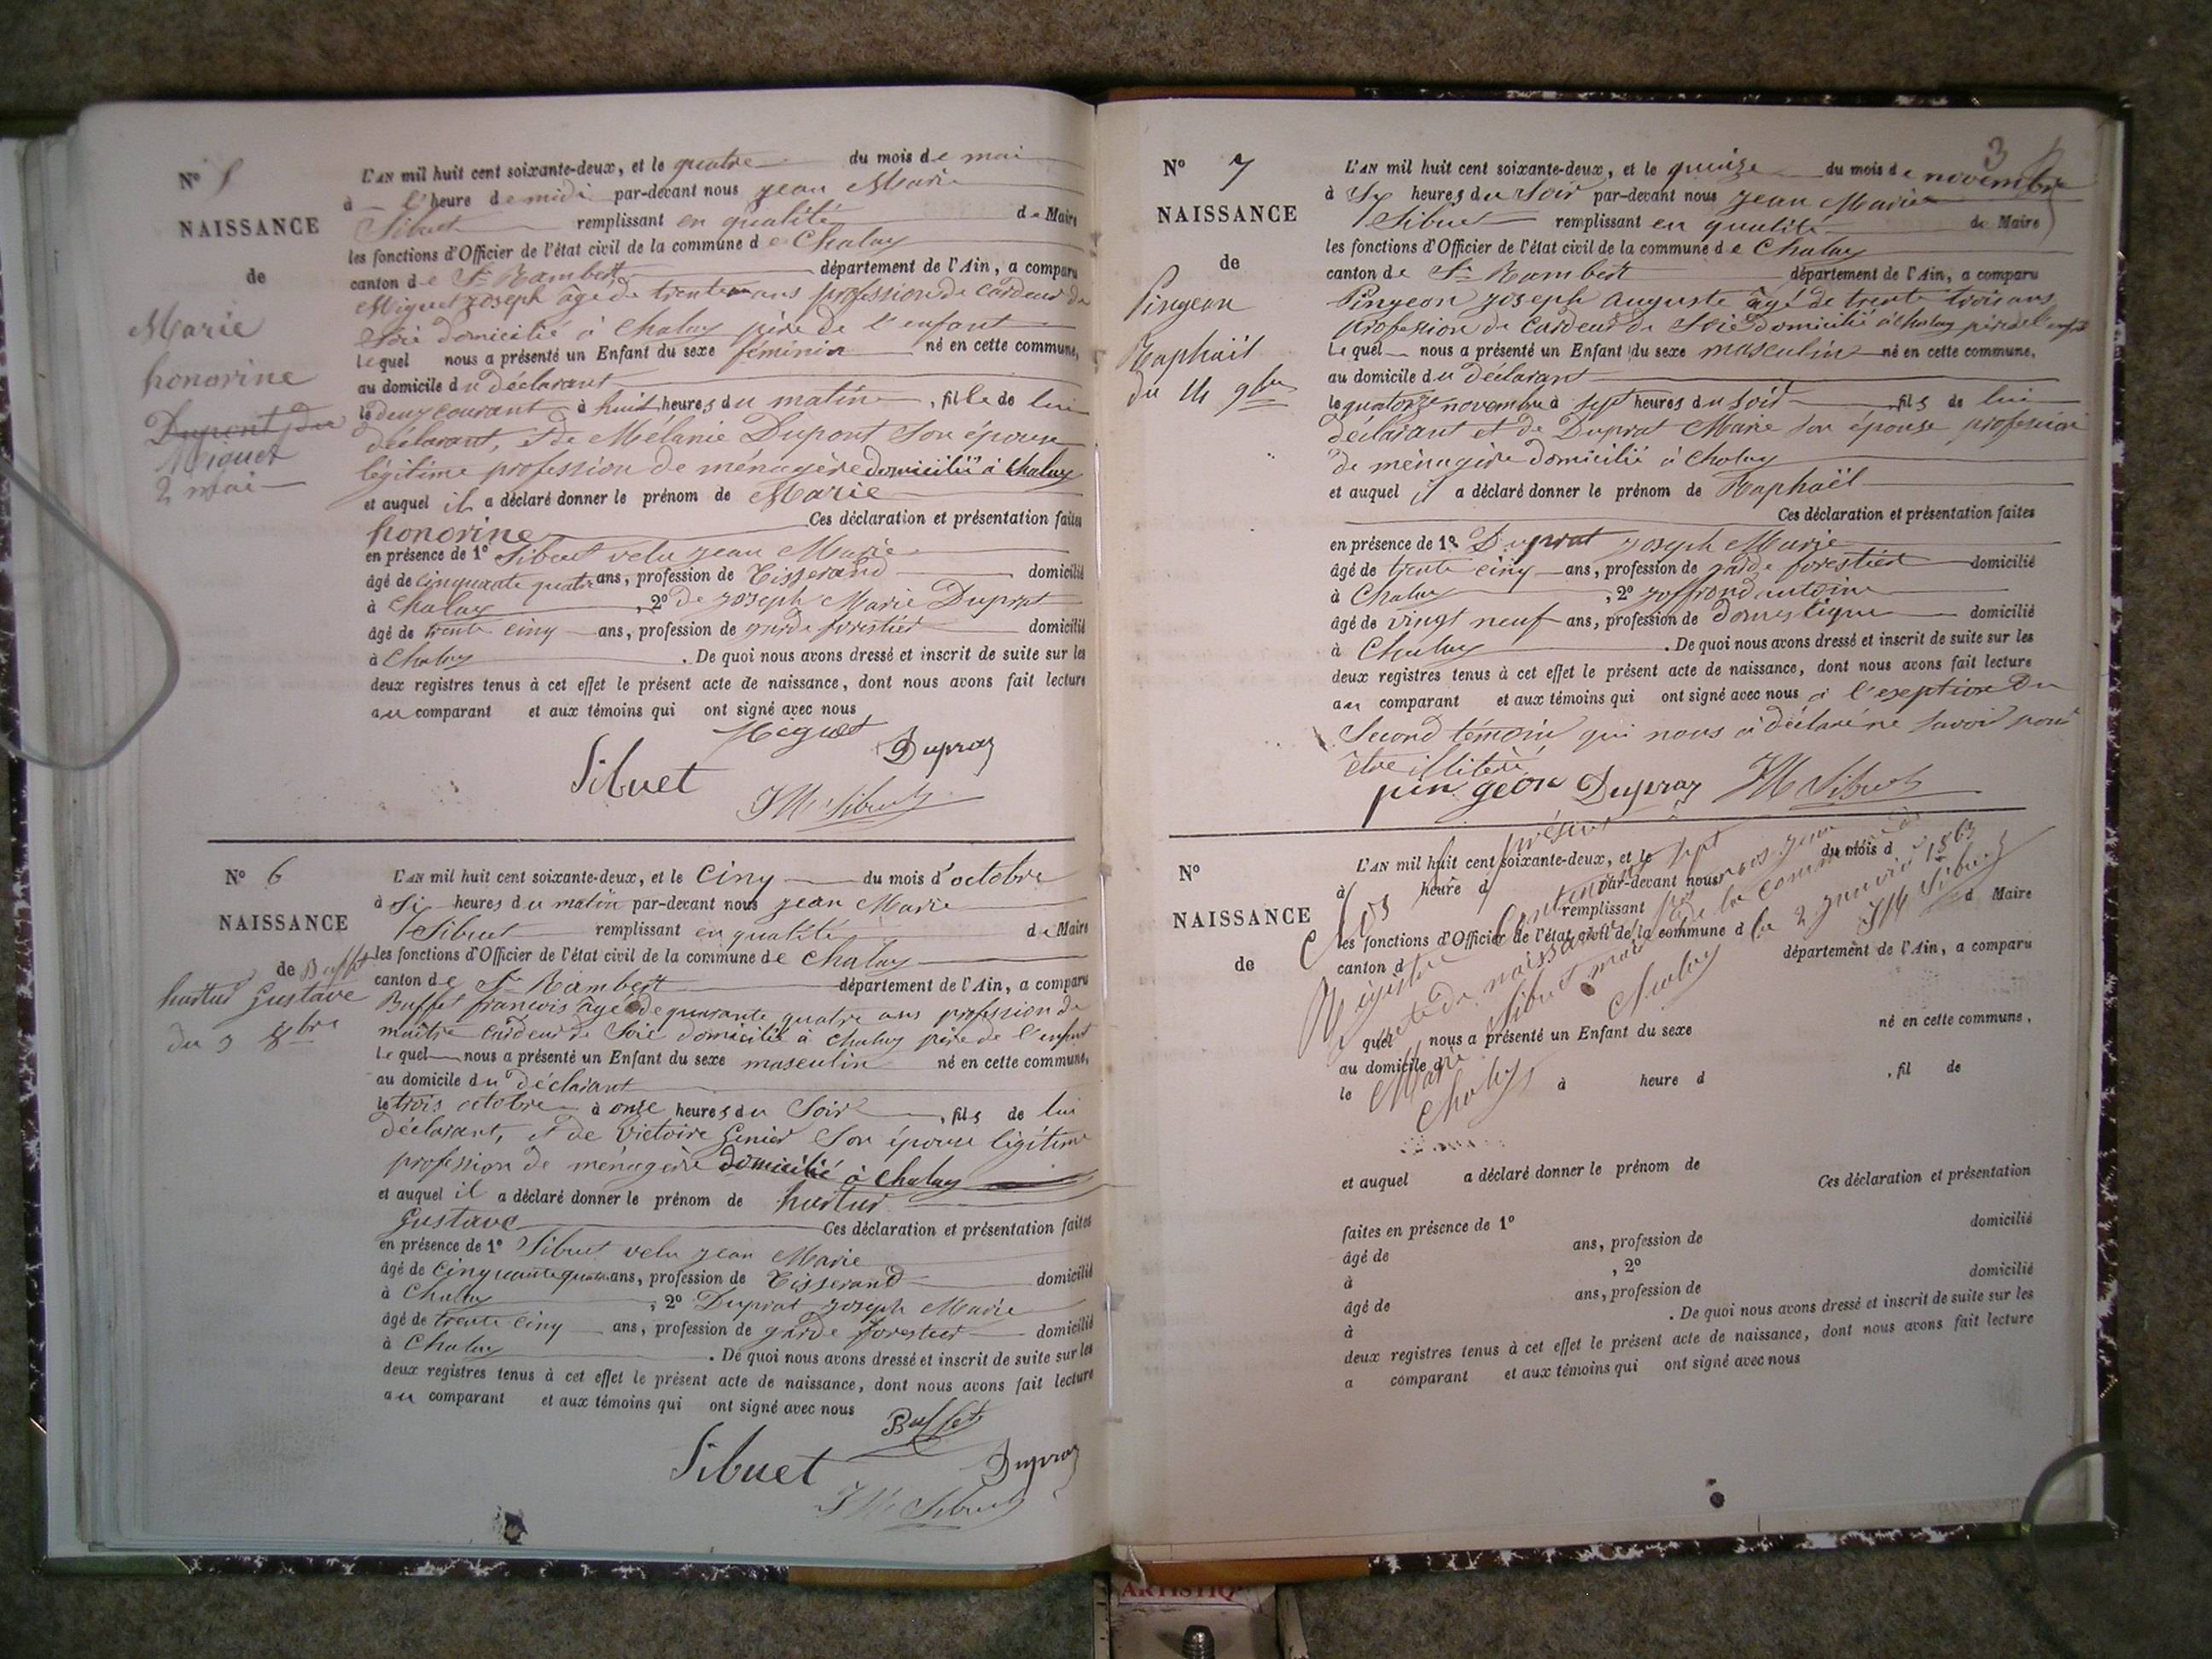 N° 5
NAISSANCE
de
Marie
honorine
Dupont du
Miguet
2 mai
L'AN mil huit cent soixante-deux, et le quatre du mois de mai
à l'heure de midi par-devant nous jean Marie
Sibuet remplissant en qualité de Maire
les fonctions d'Officier de l'état civil de la commune de Chaley
canton de St Rambert département de l'Ain, a comparu
Miguet joseph âgé de trente ans profession de cardeur de
soie domicilié à Chaley père de l'enfant
lequel nous a présenté un Enfant du sexe féminin né en cette commune,
au domicile du déclarant
le deux courant à huit heures du matin, fille de lui
déclarant, et de Mélanie Dupont son épouse
légitime profession de ménagère domicilié à Chaley
et auquel il a déclaré donner le prénom de Marie
honorine Ces déclaration et présentation faites
en présence de 1° Sibuet velu jean Marie
âgé de cinquante quatre ans, profession de Tisserand domicilié
à Chaley, 2° de joseph Marie Duprat
âgé de trente cinq ans, profession de garde forestier domicilié
à Chaley. De quoi nous avons dressé et inscrit de suite sur les
deux registres tenus à cet effet le présent acte de naissance, dont nous avons fait lecture
au comparant et aux témoins qui ont signé avec nous
Miguet
Dupraz
Sibuet
JM Sibuet
N° 6
NAISSANCE
de Buffet
hartur Gustave
du 3 8bre
L'AN mil huit cent soixante-deux, et le cinq du mois d'octobre
à si heures du matin par-devant nous jean Marie
Sibuet remplissant en qualité de Maire
les fonctions d'Officier de l'état civil de la commune de Chaley
canton de St Rambert département de l'Ain, a comparu
Buffet francois âgé de quarante quatre ans profession de
maître cardeur de soie domicilié à chaley père de l'enfant
lequel nous a présenté un Enfant du sexe masculin né en cette commune,
au domicile du déclarant
le trois octobre à onze heures du soir, fils de lui
déclarant, et de victoire Genier son épouse légitime
profession de ménagère domicilié à Chaley
et auquel il a déclaré donner le prénom de hartur
Gustave Ces déclaration et présentation faites
en présence de 1° Sibuet velu jean Marie
âgé de cinquante quatre ans, profession de Tisserand domicilié
à Chaley, 2° Duprat joseph Marie
âgé de trente cinq ans, profession de garde forestier domicilié
à Chaley. De quoi nous avons dressé et inscrit de suite sur les
deux registres tenus à cet effet le présent acte de naissance, dont nous avons fait lecture
au comparant et aux témoins qui ont signé avec nous
Buffet
Sibuet
Dupraz
JM Sibuet
3
N° 7
NAISSANCE
de
Pingeon
Raphaël
du 14 9bre
L'AN mil huit cent soixante-deux, et le quinze du mois de novembre
à Six heures du soir par-devant nous jean Marie
Sibuet remplissant en qualité de Maire
les fonctions d'Officier de l'état civil de la commune de Chaley
canton de St Rambert département de l'Ain, a comparu
Pingeon joseph auguste âgé de trente trois ans
profession de cardeur de soie domicilié à chaley père de l'enfant
Lequel nous a présenté un Enfant du sexe masculin né en cette commune,
au domicile du déclarant
le quatorze novembre à sept heures du soir fils de lui
déclarant et de Duprat Marie son épouse profession
de ménagère domicilié à Chaley
et auquel il a déclaré donner le prénom de Raphaël
Ces déclaration et présentation faites
en présence de 1° Duprat joseph Marie
âgé de trente cinq ans, profession de garde forestier domicilié
à Chaley, 2° joffrond antoine
âgé de vingt neuf ans, profession de domestique domicilié
à Chaley. De quoi nous avons dressé et inscrit de suite sur les
deux registres tenus à cet effet le présent acte de naissance, dont nous avons fait lecture
au comparant et aux témoins qui ont signé avec nous à l'exeption du
second témoin qui nous a déclaré ne savoir pour
être illitéré
pin geon Dupraz JM Sibuet
N°
NAISSANCE
de
L'AN mil huit cent soixante-deux, et le du mois d
à heure d par-devant nous
remplissant d Maire
les fonctions d'Officier de l'état civil de la commune d
canton d département de l'Ain, a comparu
quel nous a présenté un Enfant du sexe né en cette commune,
au domicile d
le à heure d, fil de
Clos le présent
Registre Contenant sept
acte de naissance par nous jean
Marie Sibuet maire de la commune de
Chaley Chaley le 2 janvier 1863
JM Sibuet
et auquel a déclaré donner le prénom de
Ces déclaration et présentation
faites en présence de 1°
âgé de ans, profession de domicilié
à, 2°
âgé de ans, profession de domicilié
à. De quoi nous avons dressé et inscrit de suite sur les
deux registres tenus à cet effet le présent acte de naissance, dont nous avons fait lecture
a comparant et aux témoins qui ont signé avec nous
ARTISTIQ